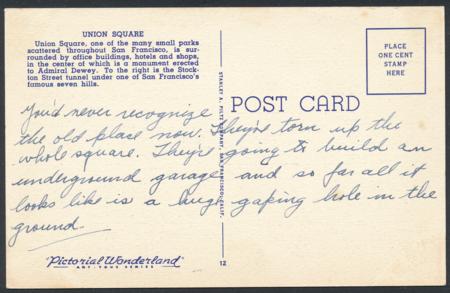 UNION SQUARE
Union Square, one of the many small parks
scattered throughout San Francisco, is sur-
rounded by office buildings, hotels and shops,
in the center of which is a monument erected
to Admiral Dewey. To the right is the Stock-
ton Street tunnel under one of San Francisco's
famous seven hills.
PLACE
ONE CENT
STAMP
HERE
POST CARD
STANLEY A. PILTZ COMPANY, SAN FRANCISCO, CALIF.
You'd never recognize
the old place now. They've torn up the
whole square. They're going to build an
underground garage and so far all it
looks like is a huge gaping hole in the
ground.
"Pictorial Wonderland"
ART-TONE SERIES
12